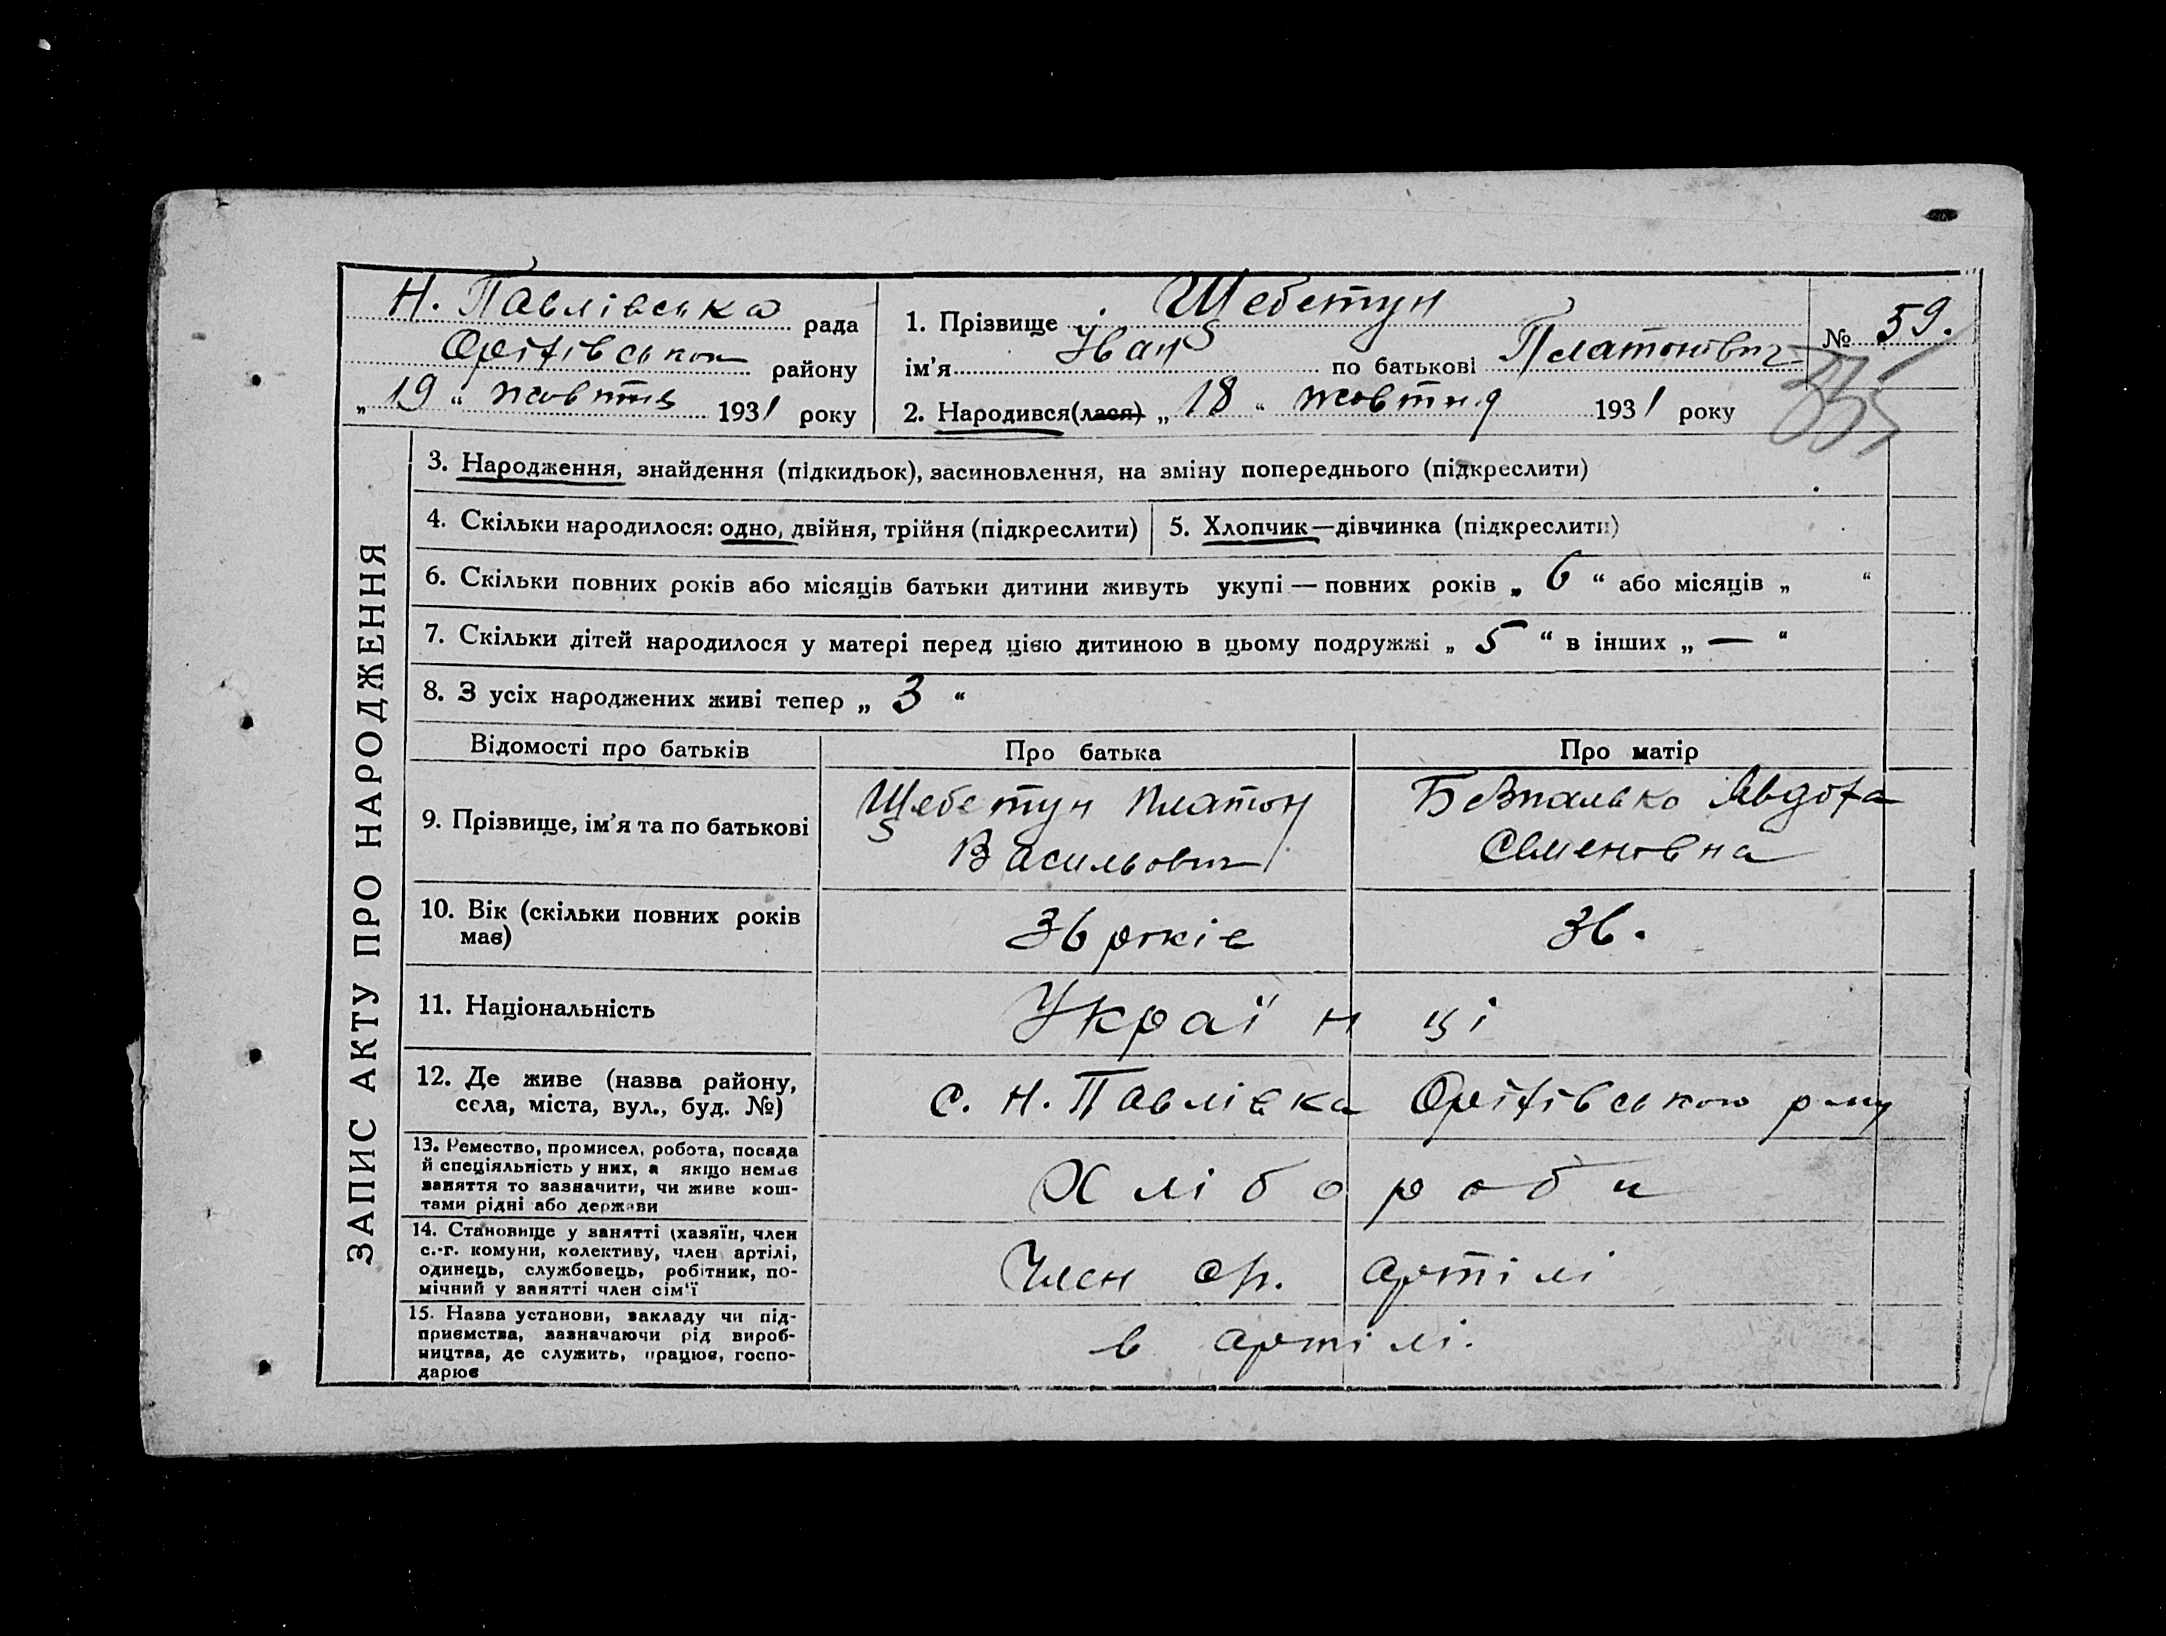 Н. Павлівська рада
Оріхівського району
„19“ жовтня 1931 року
1. Прізвище Щебетун
ім'я Іван по батькові Платонович
2. Народився(лася) „18“ жовтня 1931 року
№ 59.
ЗАПИС АКТУ ПРО НАРОДЖЕННЯ
3. Народження, знайдення (підкидьок), засиновлення, на зміну попереднього (підкреслити)
4. Скільки народилося: одно, двійня, трійня (підкреслити)
5. Хлопчик—дівчинка (підкреслити)
6. Скільки повних років або місяців батьки дитини живуть укупі — повних років „6“ або місяців „ “
7. Скільки дітей народилося у матері перед цією дитиною в цьому подружжі „5“ в інших „—“
8. З усіх народжених живі тепер „3“
Відомості про батьків Про батька Про матір
9. Прізвище, ім'я та по батькові
Щебетун Платон
Васильович
Безпалько Явдоха
Семеновна
10. Вік (скільки повних років
має)
36 років
36.
11. Національність
Українці
12. Де живе (назва району,
села, міста, вул., буд. №)
с. Н. Павлівка Оріхівського р-ну
13. Ремество, промисел, робота, посада
й спеціяльність у них, а якщо немає
заняття то зазначити, чи живе кош-
тами рідні або держави
Хлібороби
14. Становище у занятті (хазяїн, член
с.-г. комуни, колективу, член артілі,
одинець, службовець, робітник, по-
мічний у занятті член сім'ї
Член ср. артілі
15. Назва установи, закладу чи під-
приємства, зазначаючи рід вироб-
ництва, де служить, працює, госпо-
дарює
в артілі.